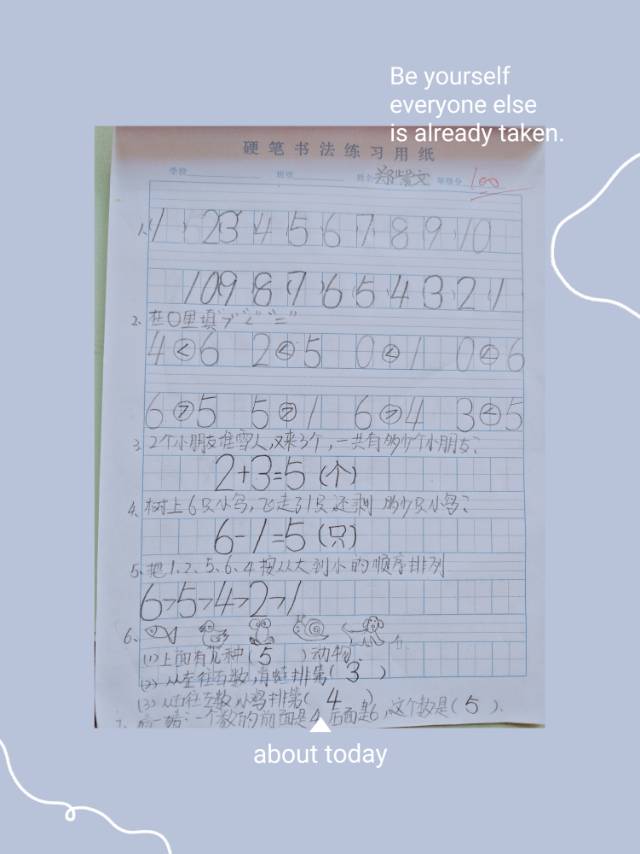 Be yourself
everyone else
is already taken.
硬笔书法练习用纸
学校 班级 姓名 郑紫文 年级分 100
1. 1 2 3 4 5 6 7 8 9 10
10 9 8 7 6 5 4 3 2 1
2、在○里填">" "<" "="
4<6 2<5 0<1 0<6
6>5 5>1 6>4 3<5
3、2个小朋友堆雪人,又来3个,一共有多少个小朋友?
2+3=5(个)
4、树上6只小鸟,飞走了1只还剩多少只小鸟?
6-1=5(只)
5、把1、2、5、6、4按从大到小的顺序排列
6>5>4>2>1
6、
(1)上面有几种(5)动物
(2)从左往右数,青蛙排第(3)
(3)从右往左数小鸡排第(4)
7、猜一猜:一个数的前面是4后面是6,这个数是(5)、
about today